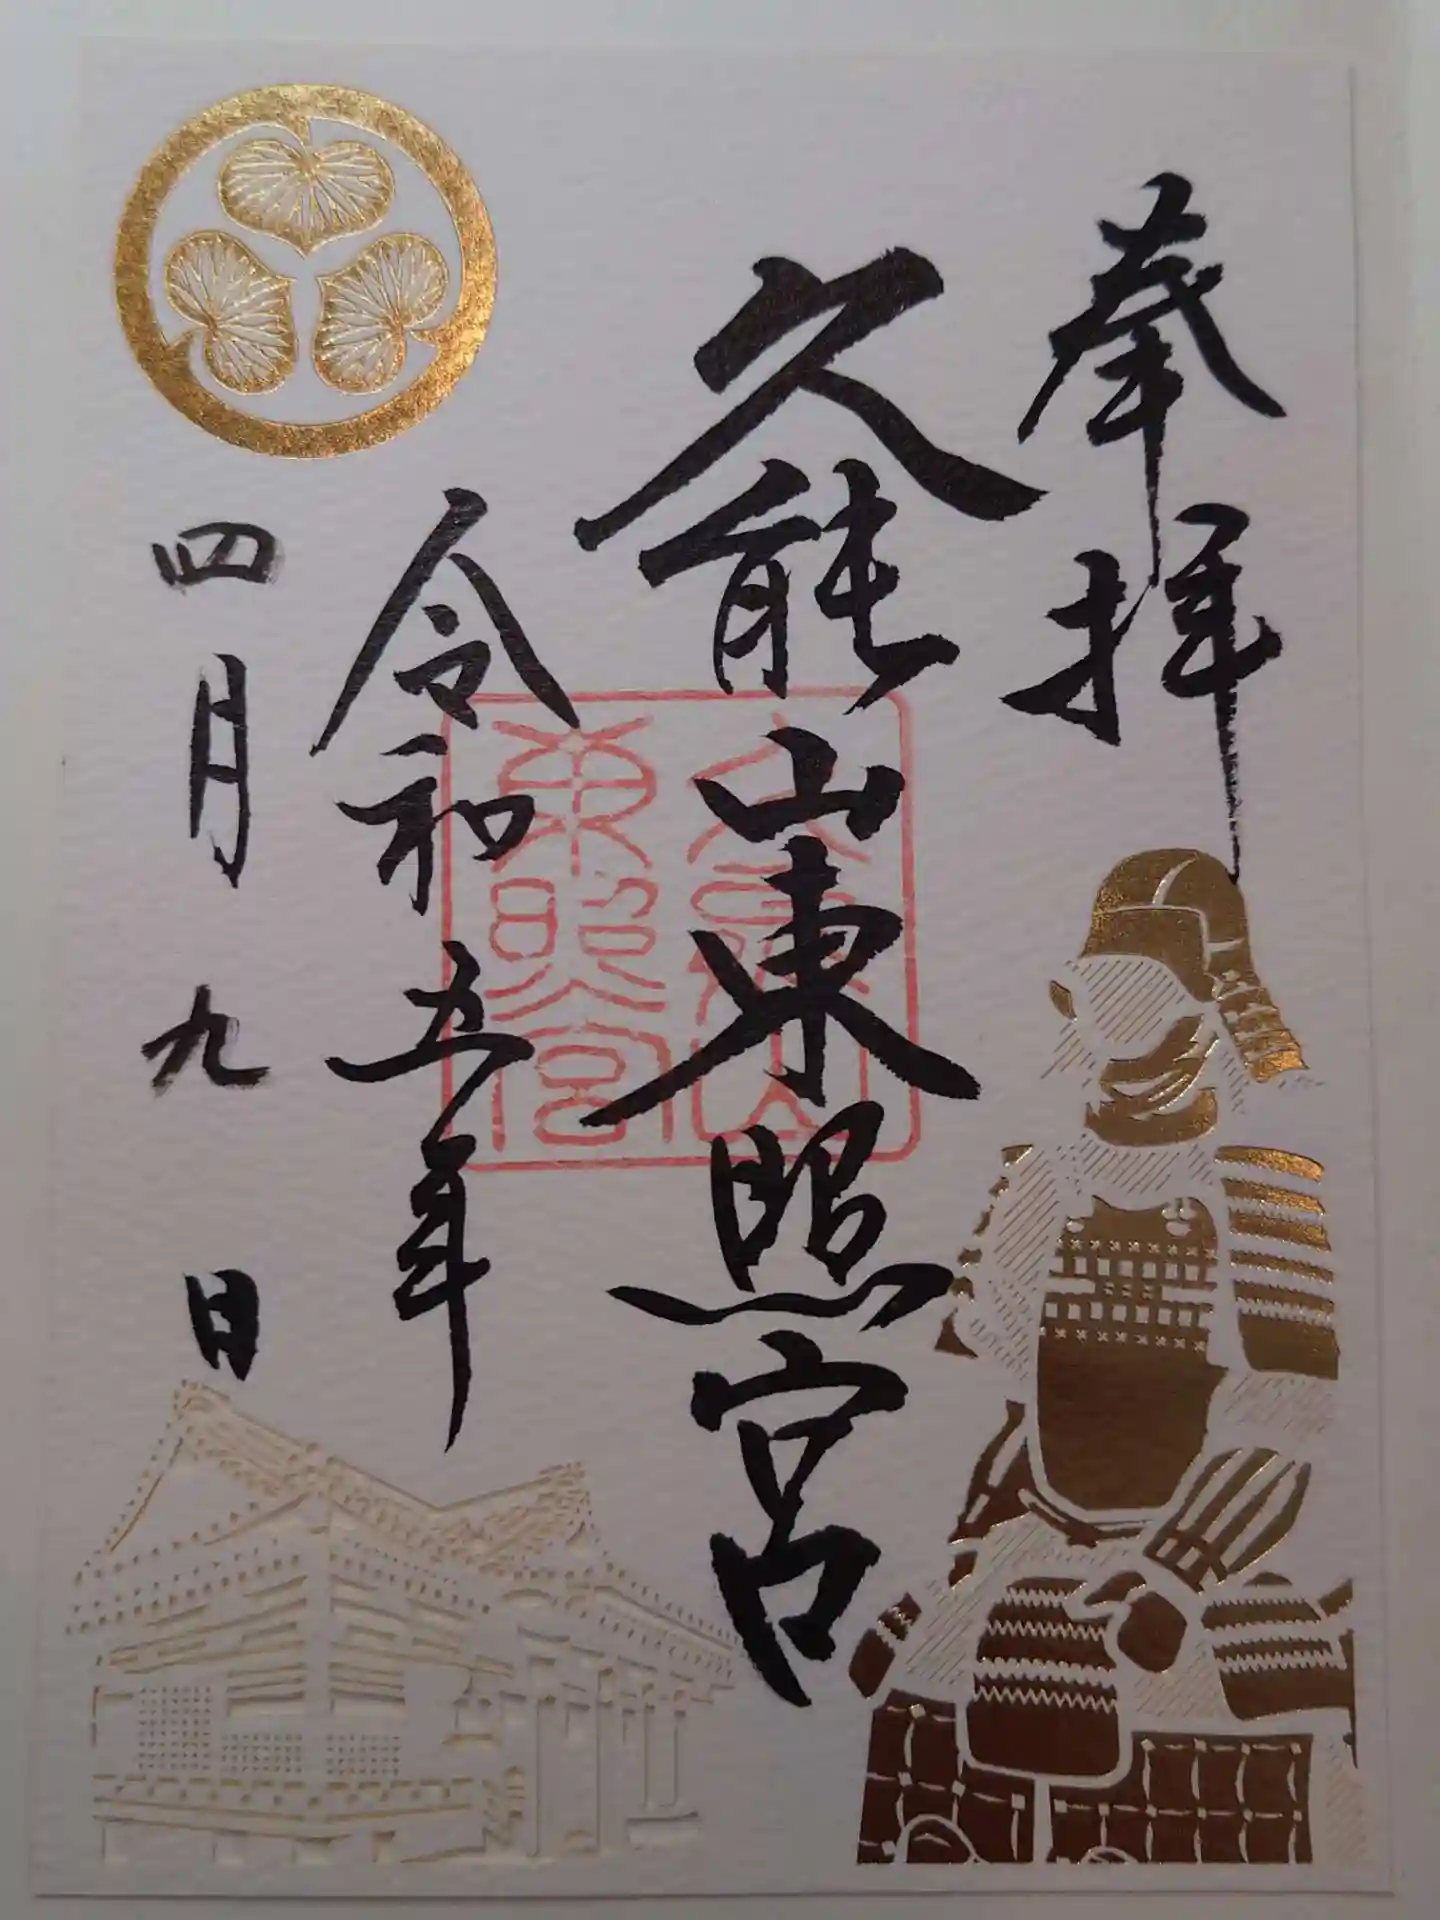 奉拝
久能山東照宮
令和五年
四月九日
久能山
東照宮